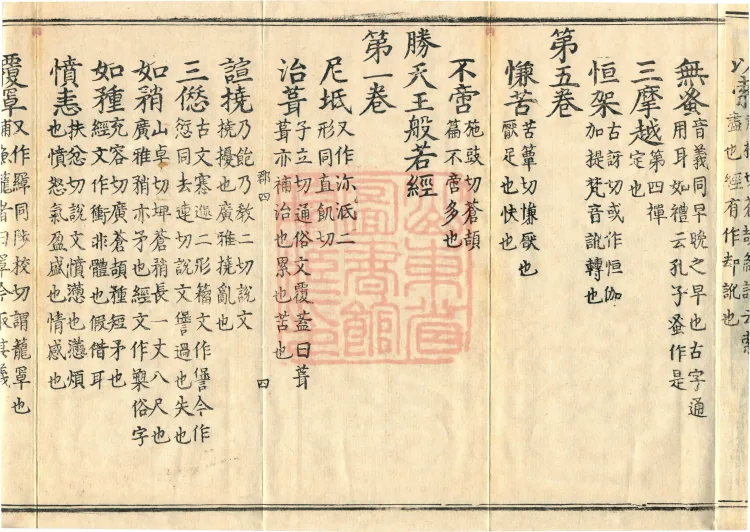 盡也經有作却說也
無蚤音義同早晚之早也古字通
用耳如禮云孔子蚤作是
三摩越第四禪
定也
恒架古訝切或作恒伽
加提梵音訛轉也
第五卷
慊苦苦簟切慊猒也
猒足也快也
不啻施豉切蒼頡
篇不啻多也
勝天王般若經
第一卷
尼坻又作沵泜二
形同直飢切
治葺子立切通俗文覆蓋曰葺
葺亦補治也累也苦也
郡四 四
諠撓乃飽乃教二切說文
撓擾也廣雅撓亂也
三愆古文寋二形籀文作諐今作
愆同去連切說文諐過也失也
如矟山卓切埤蒼矟長一丈八尺也
廣雅矟亦矛也經文作槊俗字
如穜充容切廣蒼頡穜短矛也
經文作衝非體也假借耳
憤恚扶忿切說文憤懣也懣煩
也憤怒氣盈盛也情感也
覆罩又作同陟校切謂籠罩也
捕魚籠者曰罩今取其義
山東省
圖書館